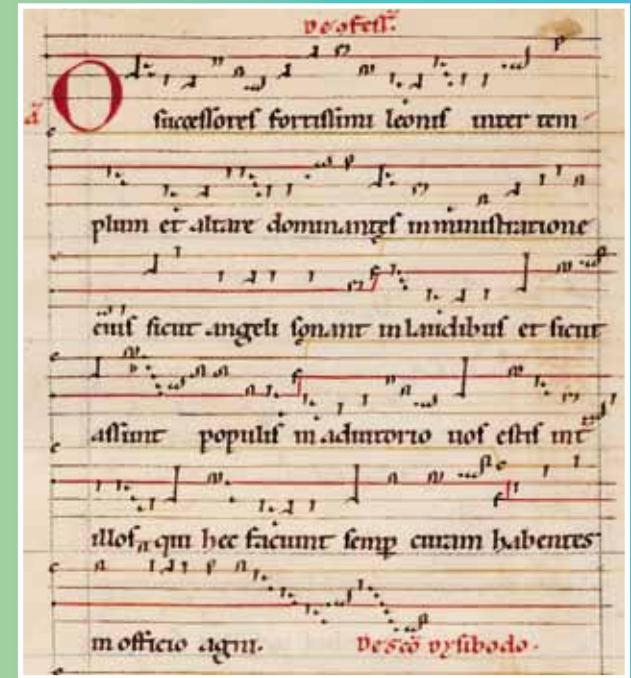 De ꝯfess̄.
ā O successores fortissimi leonis inter tem
plum et altare dominantes in ministratione
eius sicut angeli sonant in laudibus et sicut
assunt populis in adiutorio uos estis int̄
illos, qui hec faciunt semp̲ curam habentes
in officio agni. De sc̄o dysibodo.